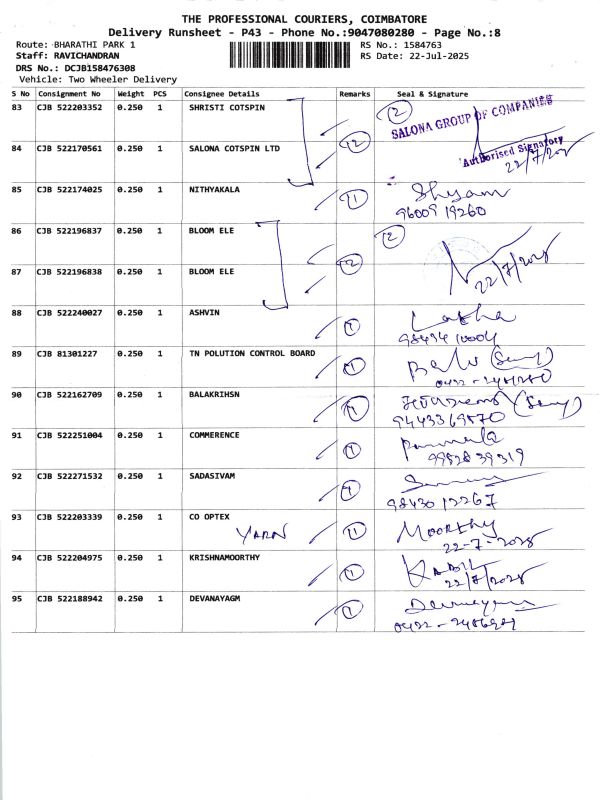 THE PROFESSIONAL COURIERS, COIMBATORE
Delivery Runsheet - P43 - Phone No.:9047080280 - Page No.:8
Route: BHARATHI PARK 1 RS No.: 1584763
Staff: RAVICHANDRAN RS Date: 22-Jul-2025
DRS No.: DCJB158476308
Vehicle: Two Wheeler Delivery
S No Consignment No Weight PCS Consignee Details Remarks Seal & Signature
83 CJB 522203352 0.250 1 SHRISTI COTSPIN 2 SALONA GROUP OF COMPANIES
84 CJB 522170561 0.250 1 SALONA COTSPIN LTD 2 Authorised Signatory
22/7/2025
85 CJB 522174025 0.250 1 NITHYAKALA 1 Shyam
96009 19260
86 CJB 522196837 0.250 1 BLOOM ELE 2
87 CJB 522196838 0.250 1 BLOOM ELE 2 22/7/2025
88 CJB 522240027 0.250 1 ASHVIN 1
98434 10004
89 CJB 81301227 0.250 1 TN POLUTION CONTROL BOARD 1
90 CJB 522162709 0.250 1 BALAKRIHSN 1
9443369870
91 CJB 522251004 0.250 1 COMMERENCE 1
9982839319
92 CJB 522271532 0.250 1 SADASIVAM 1
98430 12267
93 CJB 522203339 0.250 1 CO OPTEX 1 MOORTHY
YARN 22-7-2025
94 CJB 522204975 0.250 1 KRISHNAMOORTHY 1 KABIL
22/7/2025
95 CJB 522188942 0.250 1 DEVANAYAGM 1